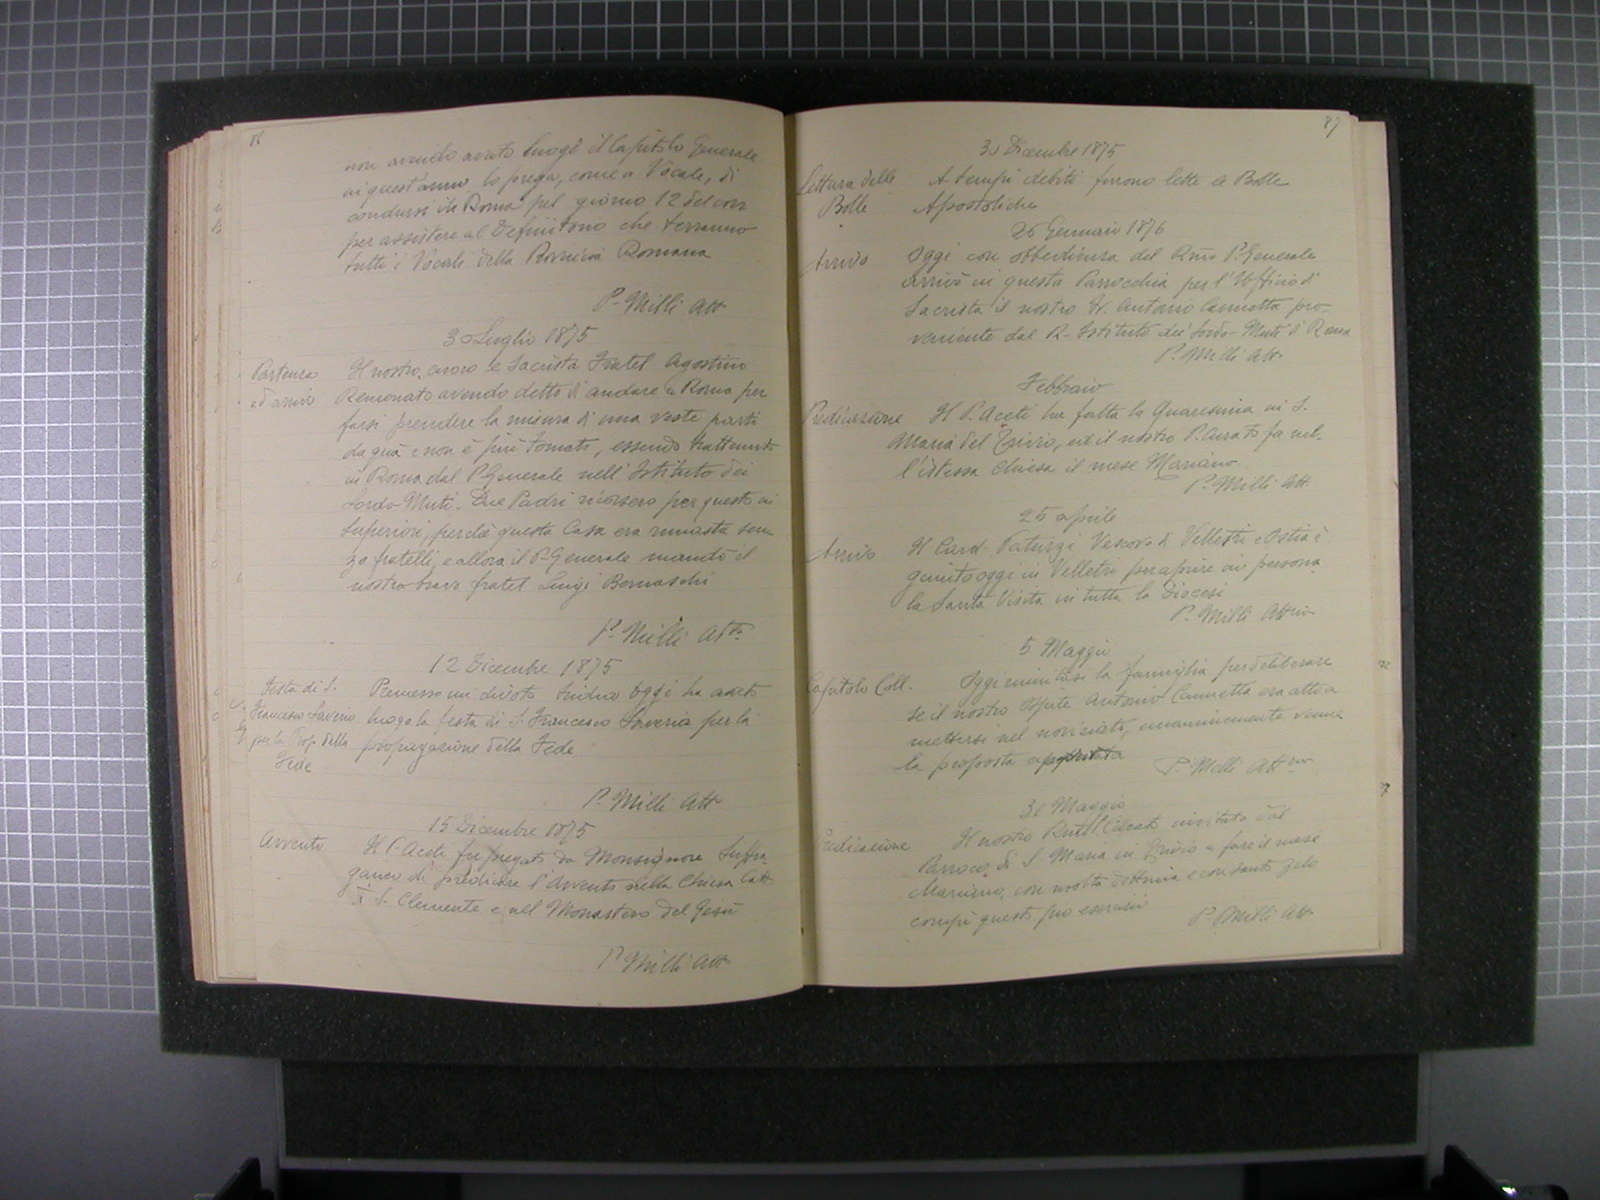 86
non avendo avuto luogo il Capitolo Generale
in quest'anno lo prega, come a Vocale, di
condursi in Roma pel giorno 12 del corr
per assistere al Definitorio che terranno
tutti i Vocali della Provincia Romana
P. Milli Att.
30 Luglio 1875
Partenza
ed arrivo
Il nostro cuoco e Sacrista Fratel Agostino
Remonato avendo detto di andare a Roma per
farsi prendere la misura di una veste partì
da quà e non è più tornato, essendo trattenuto
in Roma dal P. Generale nell'Istituto dei
Sordo-Muti. Due Padri ricorsero per questo ai
Superiori, perchè questa Casa era rimasta sen
za fratelli, e allora il P. Generale mandò il
nostro bravo fratel Luigi Bernaschi
P. Milli Att.
12 Dicembre 1875
Festa di S.
Francesco Saverio
per la Prop. della
Fede
Premesso un divoto triduo oggi ha avuto
luogo la festa di S. Francesco Saverio per la
propagazione della Fede
P. Milli Att.
15 Dicembre 1875
Avvento
Il P. Aceti fu pregato da Monsignore Suffra-
ganeo di predicare l'Avvento nella Chiesa Catt.
S. Clemente e nel Monastero del Gesù
P. Milli Att.
87
30 Dicembre 1875
Lettura delle
Bolle
A tempi debiti furono lette le Bolle
Apostoliche
26 Gennaio 1876
Arrivo
Oggi con obbedienza del Rmo P. Generale
arrivò in questa Parrocchia per l'Ufficio di
Sacrista il nostro Antonio Cannetta pro-
veniente dal R. Istituto dei Sordo-Muti di Roma
P. Milli Att.
Febbraio
Predicazione
Il P. Aceti ha fatta la Quaresima in S.
Maria del Trivio, ed il nostro P. Curato fa nel-
l'istessa Chiesa il mese Mariano
P. Milli Att.
25 Aprile
Arrivo
Il Card. Patrizi Vescovo di Velletri e Ostia è
giunto oggi in Velletri per aprire in persona
la Santa Visita in tutta la Diocesi
P. Milli Att.rio
5 Maggio
Capitolo Coll.
Oggi riunitasi la famiglia per deliberare
se il nostro Ospite Antonio Cannetta era atto a
mettersi nel noviziato, unanimemente venne
la proposta
P. Milli Att.rio
31 Maggio
Predicazione
Il nostro invitato dal
Parroco di S. Maria in Trivio a fare il mese
Mariano, con molta dottrina e con santo zelo
compì questo pio esercizio
P. Milli Att.